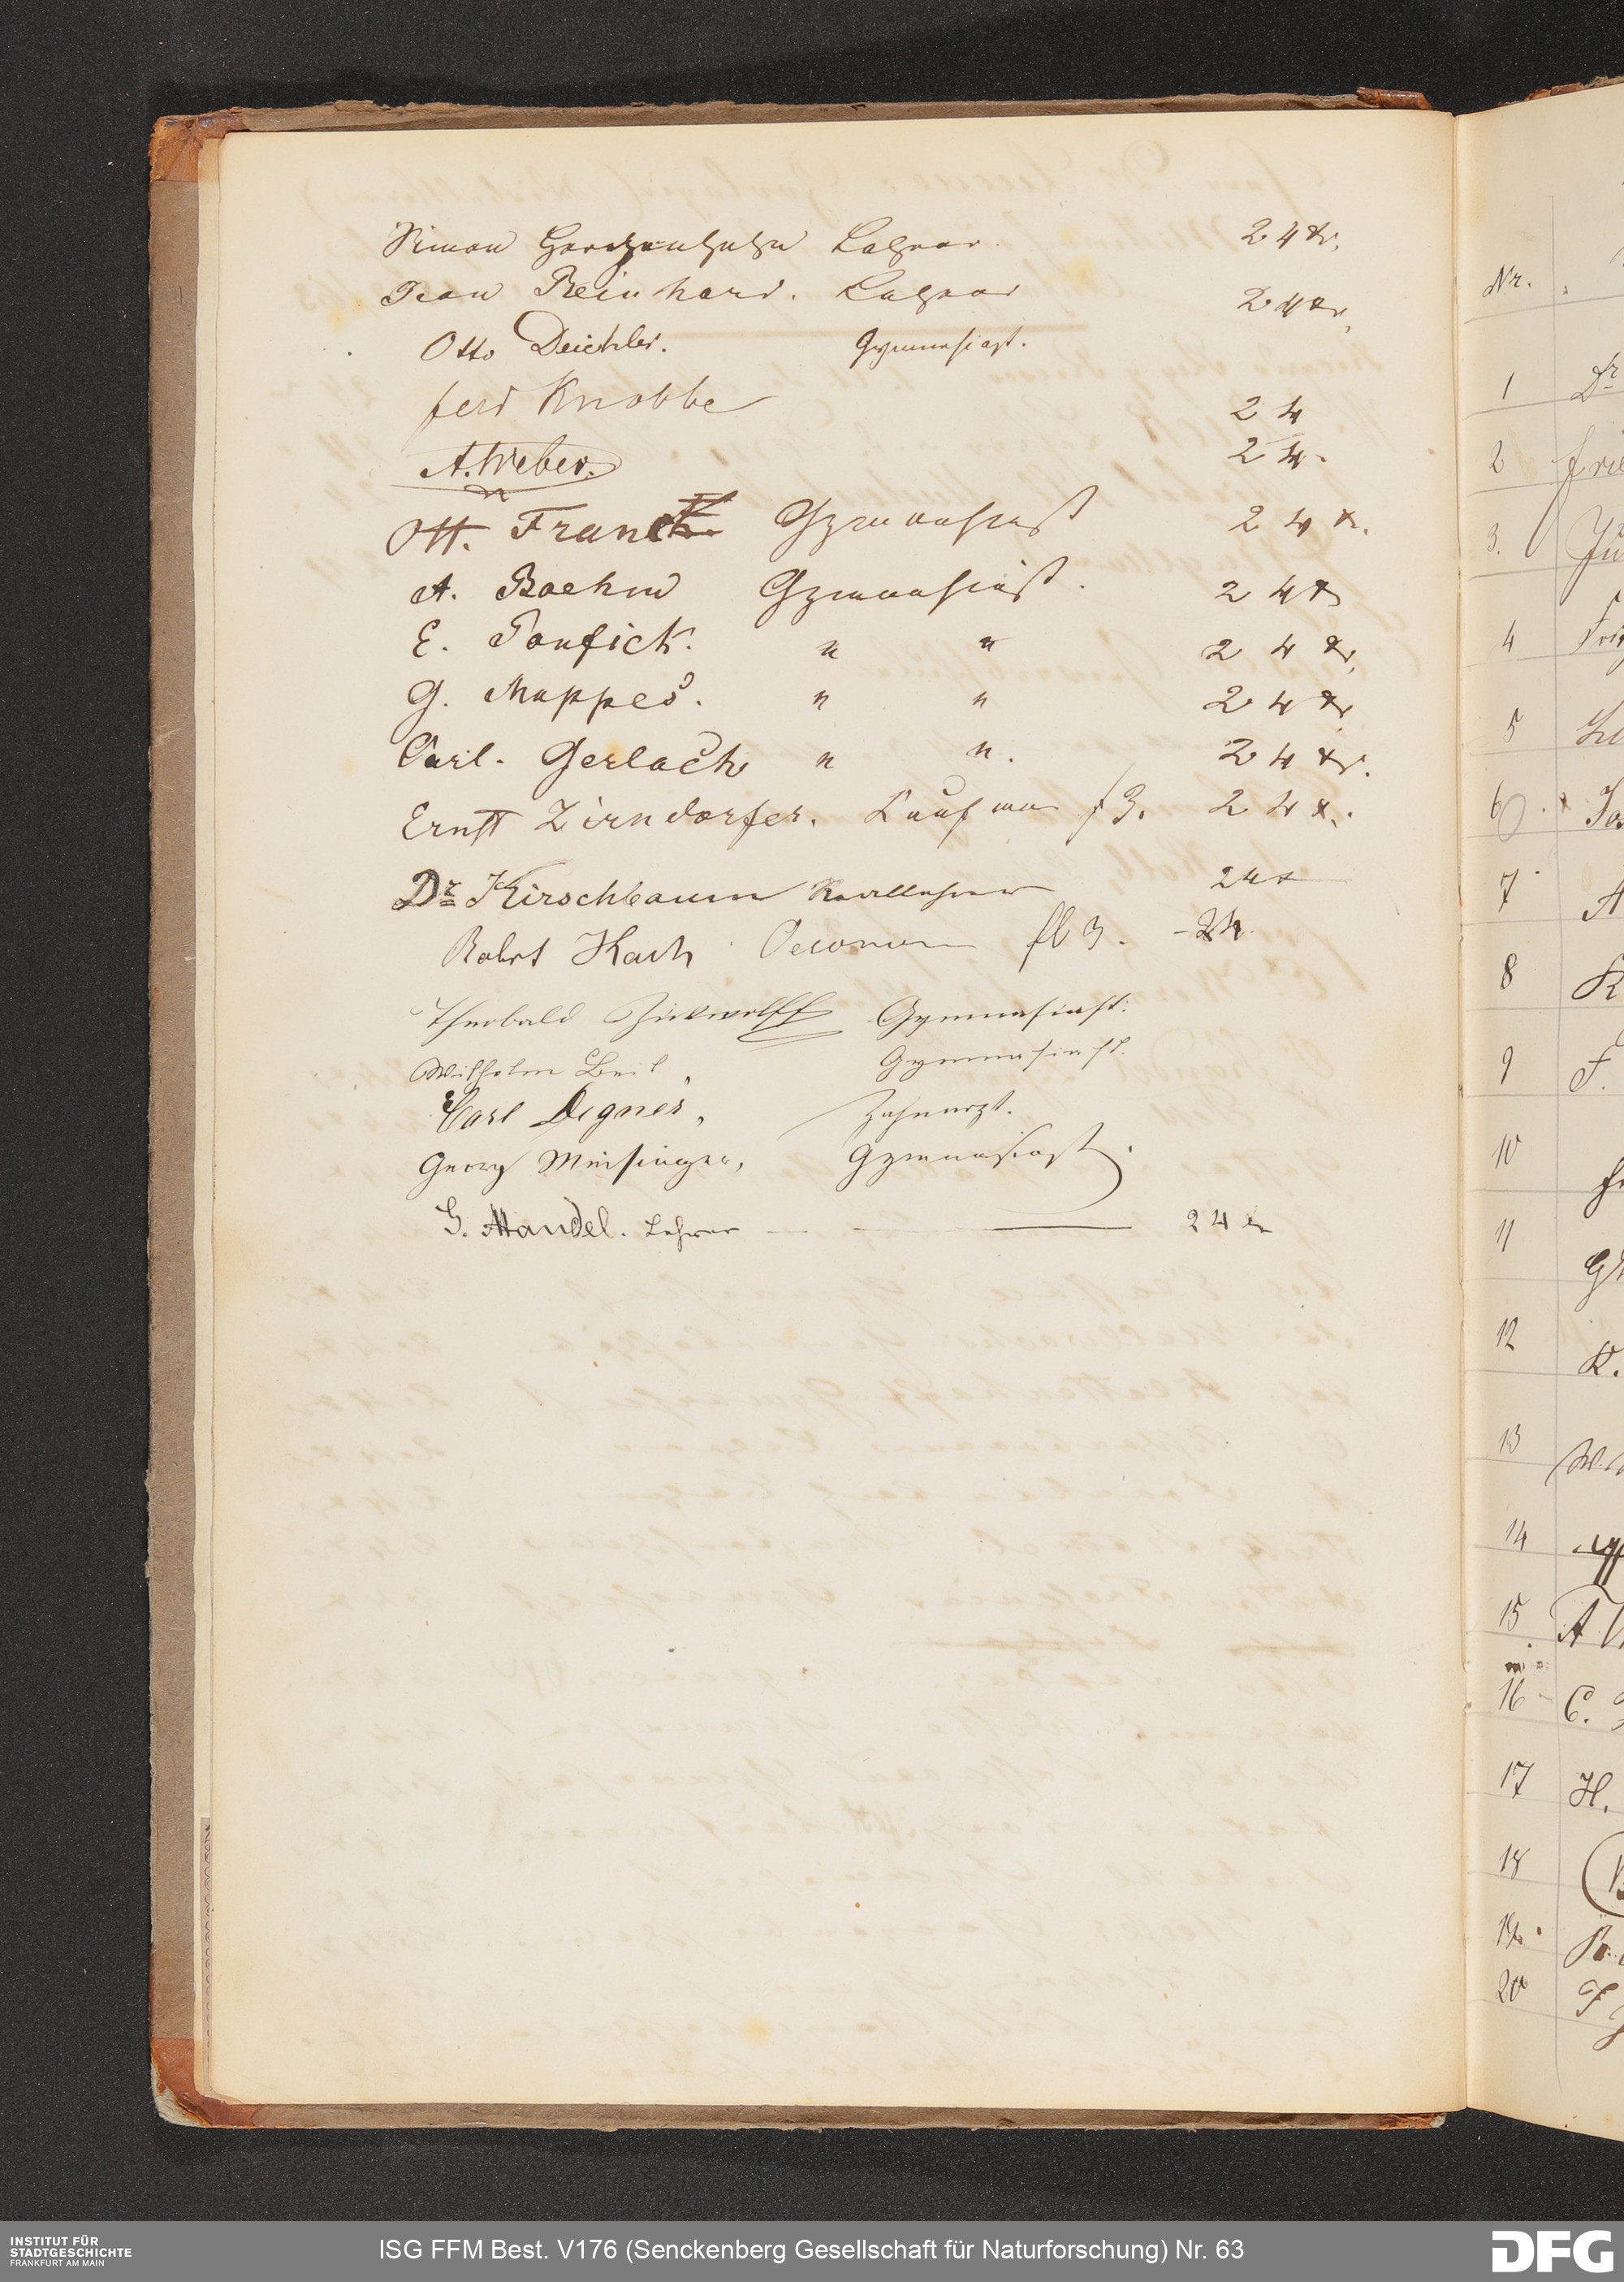 Simon Lehrer. 24 xr.
Jean Reinhard. Lehrer 24 xr.
Otto Deichler. Gymnasiast.
ferd Knobbe 24
A. Weber. 24.
Ott. Franck Gymnasiast 24 x.
A. Boehm Gymnasiast. 24 x
E. Ponfick. " " 24 xr.
G. Mappes. " " 24 xr
Carl. Gerlach " ". 24 xr.
Ernst Zirndorfer. Kaufman f 3. 24 x.
Dr Kirschbaum Reallehrer 24 x
Robert Koch Oeconom fl 3. - 24.
Theobald Zickwolff Gymnasiast.
Wilhelm Beil, Gymnasiast.
Carl Degner, Zahnarzt.
Georg Meisinger, Gymnasiast.
G. Mandel. Lehrer — 24 xr
Nr.
1 Dr
2
3.
4
5
6
7 A
8 K
9 F.
10
11
12 K.
13
14
15 A
16 C.
17 H.
18
19
20
INSTITUT FÜR
STADTGESCHICHTE
FRANKFURT AM MAIN
ISG FFM Best. V176 (Senckenberg Gesellschaft für Naturforschung) Nr. 63
DFG